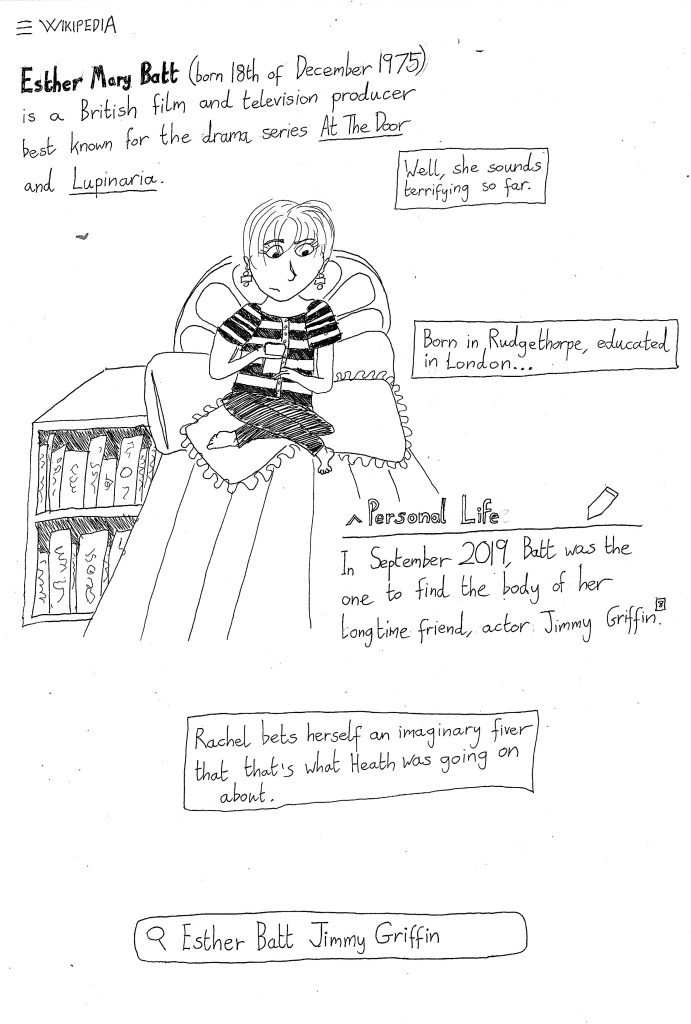 WIKIPEDIA
Esther Mary Batt (born 18th of December 1975)
is a British film and television producer
best known for the drama series At The Door
and Lupinaria.
Well, she sounds
terrifying so far.
Born in Rudgethorpe, educated
in London...
Personal Life
In September 2019, Batt was the
one to find the body of her
longtime friend, actor Jimmy Griffin.
Rachel bets herself an imaginary fiver
that that's what Heath was going on
about.
Esther Batt Jimmy Griffin